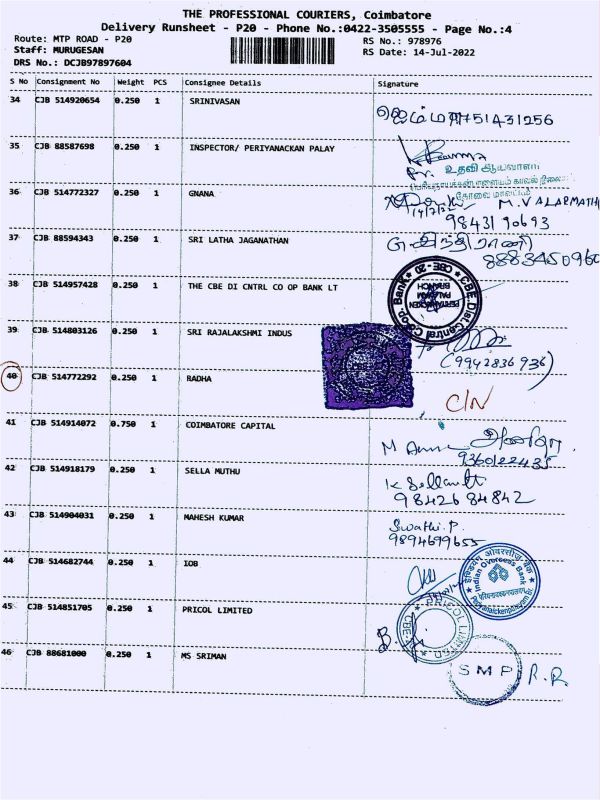 THE PROFESSIONAL COURIERS, Coimbatore
Delivery Runsheet - P20 - Phone No.:0422-3505555 - Page No.:4
Route: MTP ROAD - P20
RS No.: 978976
Staff: MURUGESAN
RS Date: 14-Jul-2022
DRS No.: DCJB97897604
S No Consignment No Weight PCS Consignee Details Signature
34 CJB 514920654 0.250 1 SRINIVASAN
9751431256
35 CJB 88587698 0.250 1 INSPECTOR/ PERIYANACKAN PALAY
உதவி ஆய்வாளர்
36 CJB 514772327 0.250 1 GNANA
M.VALARMATHI
9843190693
37 CJB 88594343 0.250 1 SRI LATHA JAGANATHAN
8883450960
38 CJB 514957428 0.250 1 THE CBE DI CNTRL CO OP BANK LT
CBE.Dist.Central Co-op. Bank CBE - 20
PERIYANAICKEN PALAYAM BRANCH
39 CJB 514803126 0.250 1 SRI RAJALAKSHMI INDUS
(9942836936)
40 CJB 514772292 0.250 1 RADHA
C/N
41 CJB 514914072 0.750 1 COIMBATORE CAPITAL
9360122435
42 CJB 514918179 0.250 1 SELLA MUTHU
9842684842
43 CJB 514904031 0.250 1 MAHESH KUMAR
Swathi.P.
9894699655
44 CJB 514682744 0.250 1 IOB
Indian Overseas Bank
45 CJB 514851705 0.250 1 PRICOL LIMITED
PRICOL LIMITED
46 CJB 88681000 0.250 1 MS SRIMAN
SMP R.R